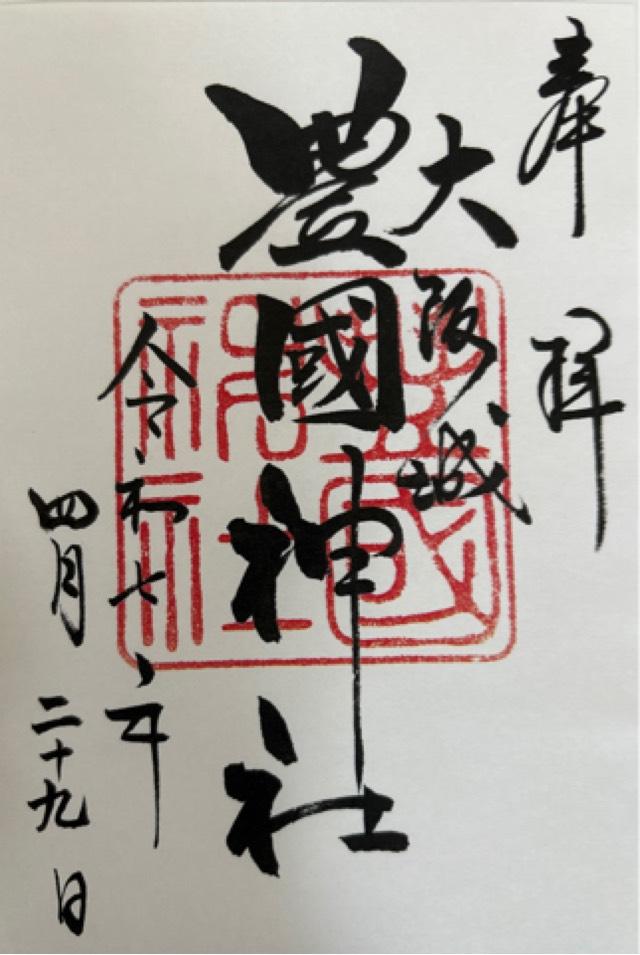 奉拝
大阪城
豊國神社
令和七年
四月二十九日
豊國神社